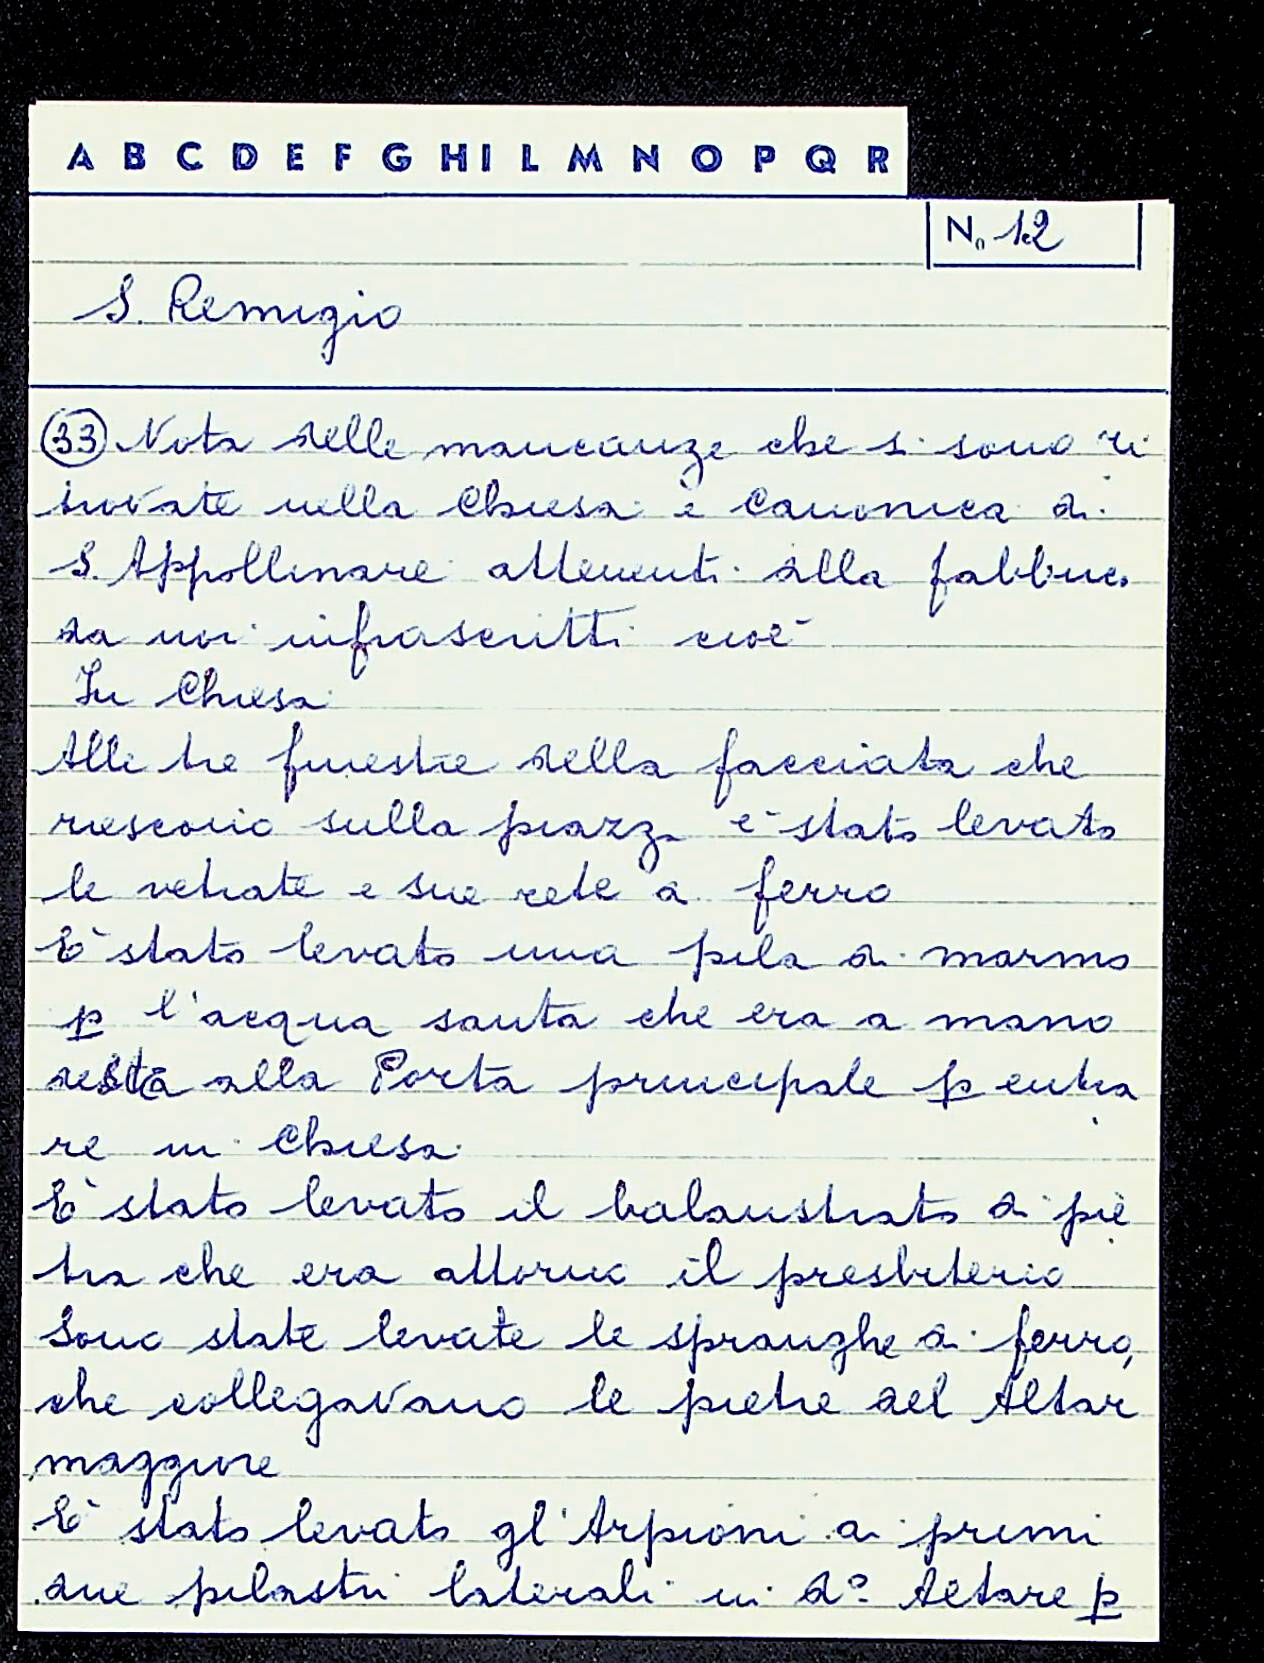 A B C D E F G H I L M N O P Q R
N. 12
S. Remigio
(33) Nota delle mancanze che si sono ri
trovate nella Chiesa e Canonica di
S. Appollinare attenenti alla fabbrica
da noi infrascritti cioè
In Chiesa
Alle tre finestre della facciata che
riescono sulla piazza è stato levato
le vetrate e sue rete di ferro
È stato levato una pila di marmo
p l'acqua santa che era a mano
destra alla Porta principale p entra
re in Chiesa
È stato levato il balaustrato di pie
tra che era attorno il presbiterio
Sono state levate le spranghe di ferro,
che collegavano le pietre del Altar
maggiore
È stato levato gl'Arpioni ai primi
due pilastri laterali in do Altare p